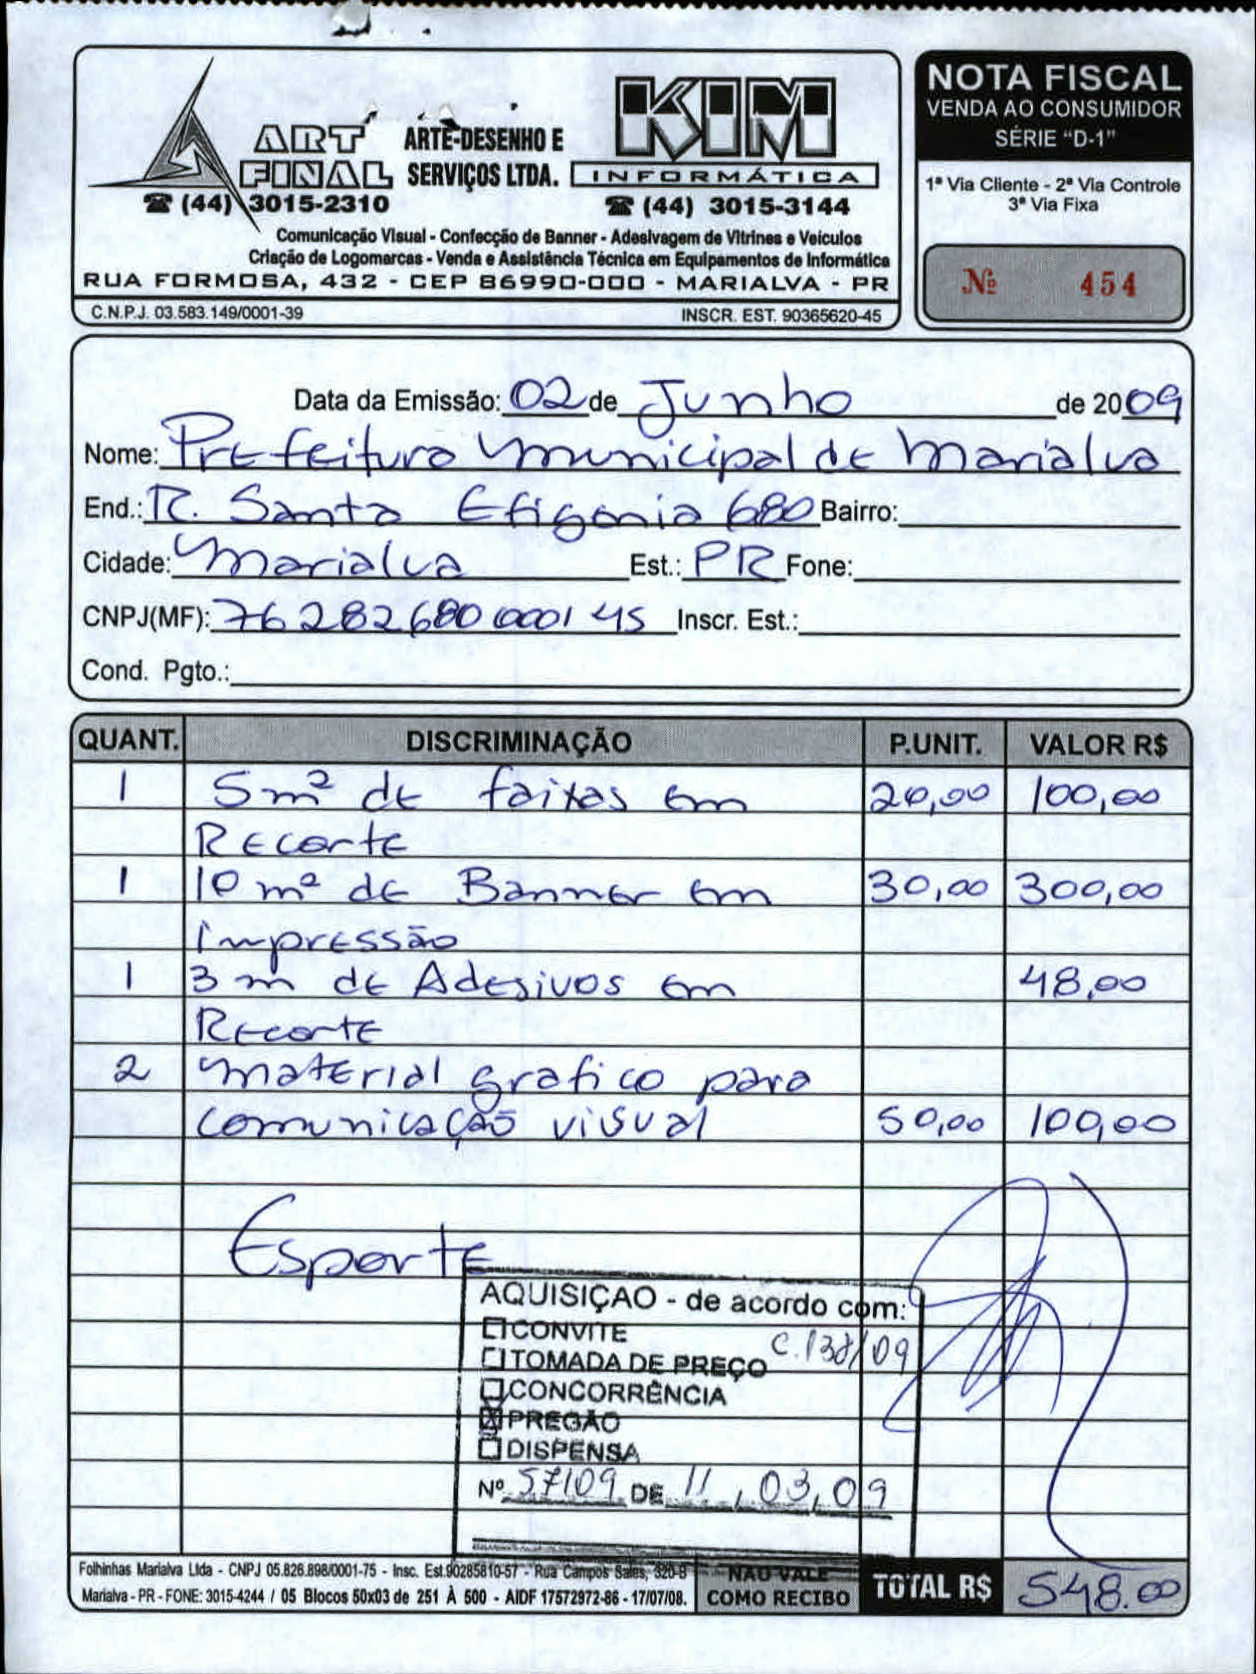 ART FINAL
ARTE-DESENHO E
SERVIÇOS LTDA.
KIM
INFORMÁTICA
☎ (44) 3015-2310
☎ (44) 3015-3144
Comunicação Visual - Confecção de Banner - Adesivagem de Vitrines e Veículos
Criação de Logomarcas - Venda e Assistência Técnica em Equipamentos de Informática
RUA FORMOSA, 432 - CEP 86990-000 - MARIALVA - PR
C.N.P.J. 03.583.149/0001-39 INSCR. EST. 90365620-45
NOTA FISCAL
VENDA AO CONSUMIDOR
SÉRIE "D-1"
1ª Via Cliente - 2ª Via Controle
3ª Via Fixa
Nº 454
Data da Emissão: 02 de Junho de 2009
Nome: Prefeitura Municipal de Marialva
End.: R. Santa Efigenia 680 Bairro:
Cidade: Marialva Est.: PR Fone:
CNPJ(MF): 76 282 680 0001 45 Inscr. Est.:
Cond. Pgto.:
QUANT. DISCRIMINAÇÃO P.UNIT. VALOR R$
1 5 m² de faixas em 20,00 100,00
Recorte
1 10 m² de Banner em 30,00 300,00
Impressão
1 3 m de Adesivos em 48,00
Recorte
2 Material grafico para
comunicação visual 50,00 100,00
Esporte
AQUISIÇAO - de acordo com:
CONVITE
C.138/09
TOMADA DE PREÇO
CONCORRÊNCIA
PREGÃO
DISPENSA
Nº 57/09 DE 11,03,09
Folhinhas Marialva Ltda - CNPJ 05.826.898/0001-75 - Insc. Est.90285810-57 - Rua Campos Sales, 320-B
Marialva - PR - FONE: 3015-4244 / 05 Blocos 50x03 de 251 À 500 - AIDF 17572972-86 - 17/07/08.
NÃO VALE
COMO RECIBO
TOTAL R$ 548.00